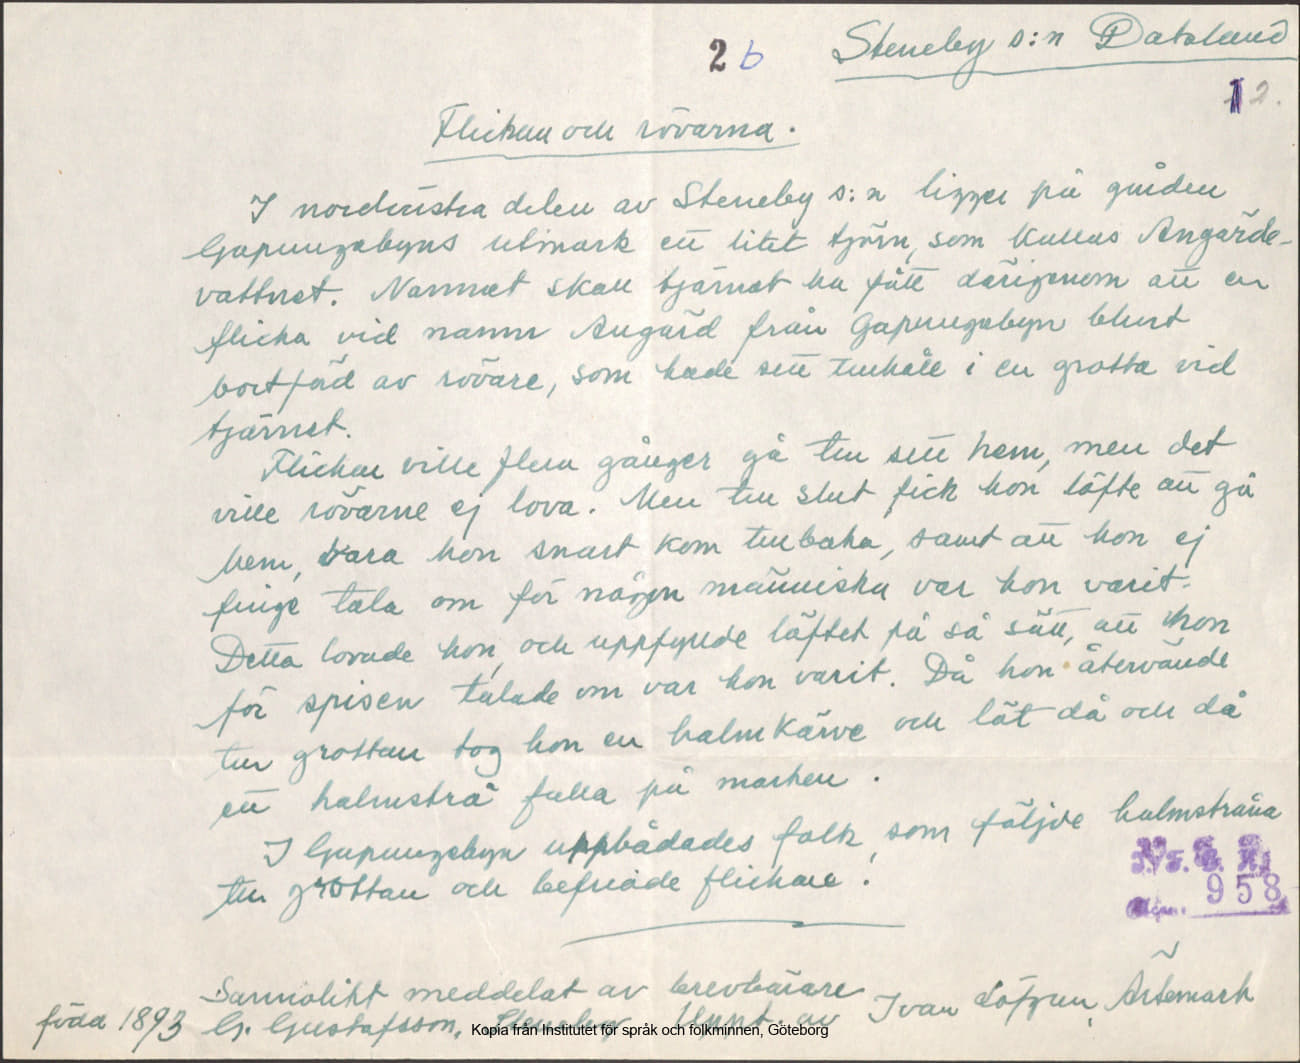 2 b
Steneby s:n Dalsland
12.
Flickan och rövarna.
I nordvästra delen av Steneby s:n ligger på gården
Gapungebyns utmark ett litet tjärn, som kallas Angärds-
vattnet. Namnet skall tjärnet ha fått därigenom att en
flicka vid namn Angärd från Gapungebyn blivit
bortförd av rövare, som hade sitt tillhåll i en grotta vid
tjärnet.
Flickan ville flera gånger gå till sitt hem, men det
ville rövarne ej lova. Men till slut fick hon löfte att gå
hem, bara hon snart kom tillbaka, samt att hon ej
finge tala om för någon människa var hon varit.
Detta lovade hon, och uppfyllde löftet på så sätt, att hon
för spisen talade om var hon varit. Då hon återvände
till grottan tog hon en halmkärve och lät då och då
ett halmstrå falla på marken.
I Gapungebyn uppbådades folk, som följde halmstråna
till grottan och befriade flickan.
958
Sannolikt meddelat av brevbärare
född 1893 G. Gustafsson, Steneby Uppt. av Ivan Löfgren, Ärtemark
Kopia från Institutet för språk och folkminnen, Göteborg